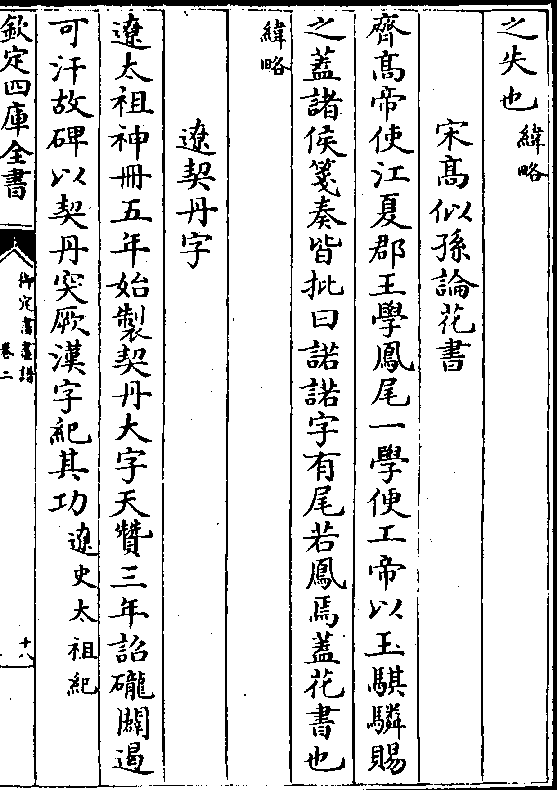 之失也緯略
宋高似孫論花書
齊高帝使江夏郡王學鳳尾一學便工帝以玉騏驎賜
之蓋諸侯箋奏皆批曰諾諾字有尾若鳳焉蓋花書也
緯略
遼契丹字
遼太祖神冊五年始製契丹大字天贊三年詔礲闢遏
可汗故碑以契丹突厥漢字紀其功遼史太祖紀
欽定四庫全書
御定書畫譜
卷二
十八